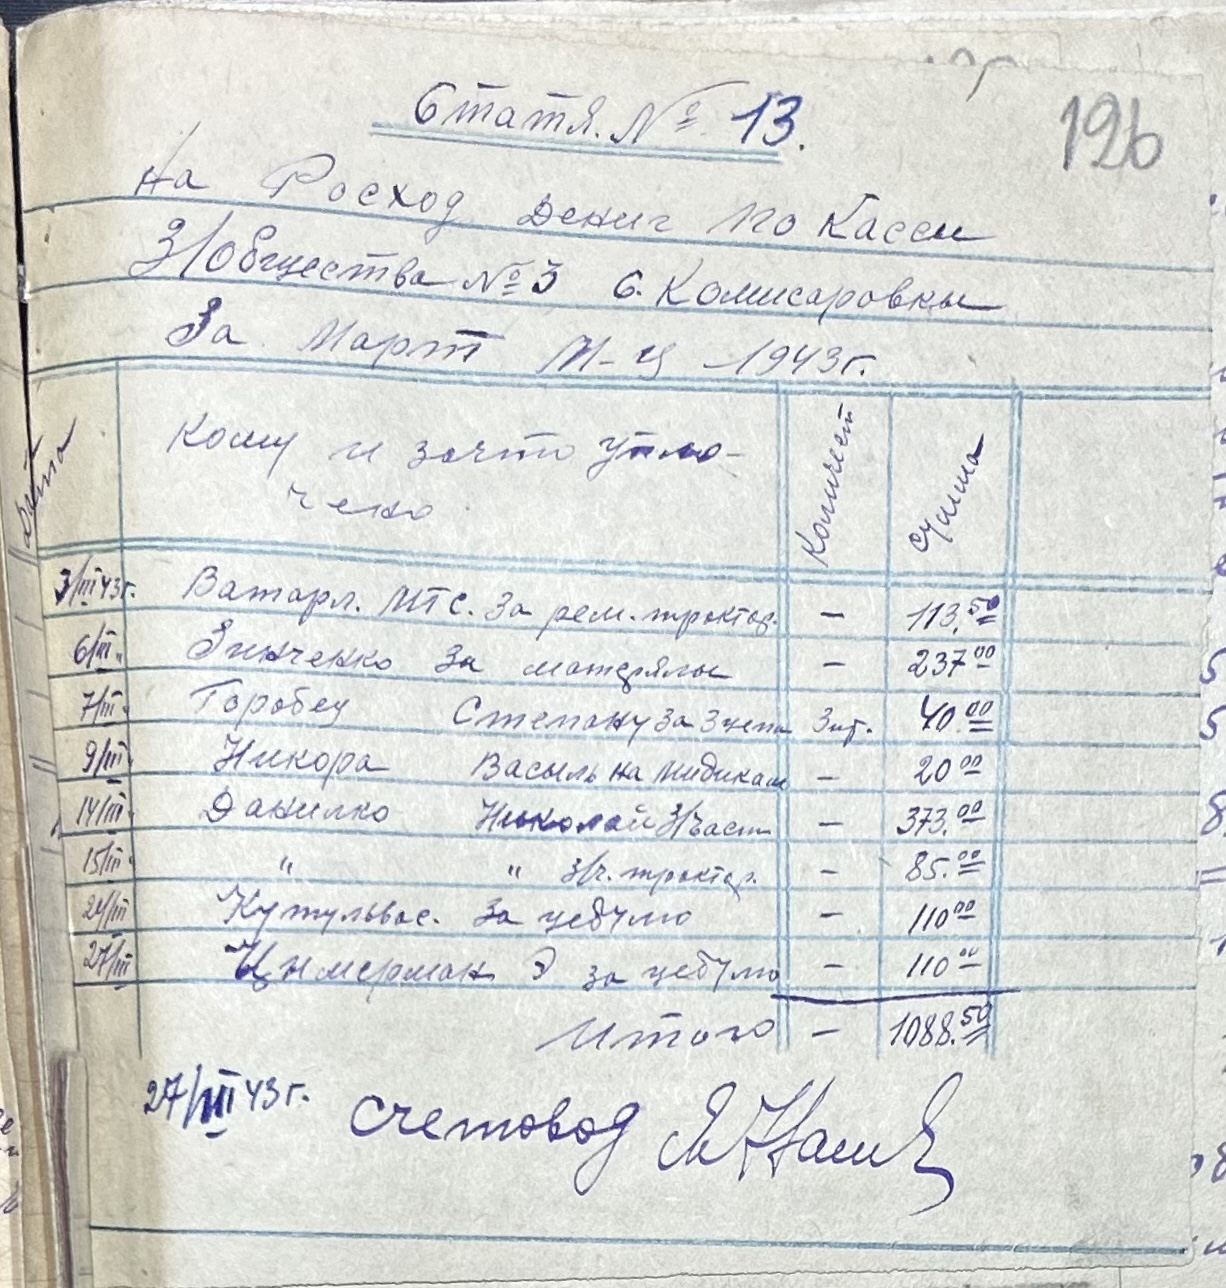 Статя. № 13.
126
На Росход Дениг по Касси
З/Общества № 3 С. Комисаровкы
За Март М-ц 1943г.
Дата
Кому и зачто упло-
чено
Количест
Сумма
3/III 43г. Ватарл. МТС. За рем. трактор. — 113.50
6/III„ Зинченко За матерялы — 237 00
7/III. Горобец Степану За Зцепи 3 шт. 40.00
9/III Никора Василь на Мидикам — 20 00
14/III. Данилко Николай З/Част — 373.00
15/III. " " З/ч. трактор. — 85.00
24/III За цебулю — 110 00
27/III Цимерман Э за цебулю — 110 00
Итого — 1088.50
27/III 43г. Счетовод